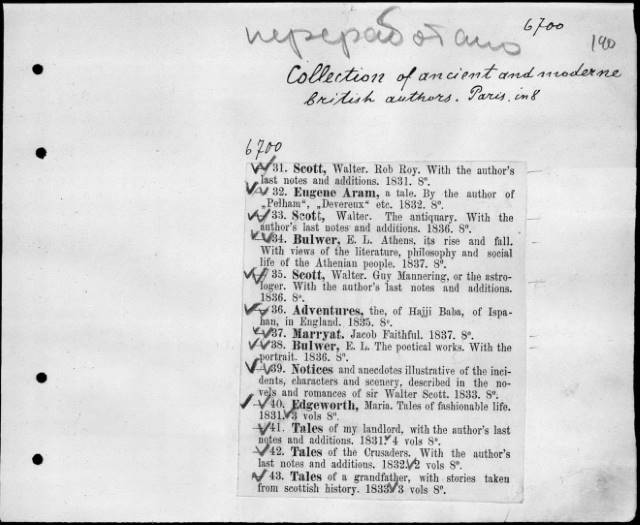 переработано
6700
190
Collection of ancient and moderne
british authors. Paris. in 8
6700
31. Scott, Walter. Rob Roy. With the author's
last notes and additions. 1831. 8°.
32. Eugene Aram, a tale. By the author of
„Pelham“, „Devereux“ etc. 1832. 8°.
33. Scott, Walter. The antiquary. With the
author's last notes and additions. 1836. 8°.
34. Bulwer, E. L. Athens, its rise and fall.
With views of the literature, philosophy and social
life of the Athenian people. 1837. 8°.
35. Scott, Walter. Guy Mannering, or the astro-
loger. With the author's last notes and additions.
1836. 8°.
36. Adventures, the, of Hajji Baba, of Ispa-
han, in England. 1835. 8°.
37. Marryat. Jacob Faithful. 1837. 8°.
38. Bulwer, E. L. The poetical works. With the
portrait. 1836. 8°.
39. Notices and anecdotes illustrative of the inci-
dents, characters and scenery, described in the no-
vels and romances of sir Walter Scott. 1833. 8°.
40. Edgeworth, Maria. Tales of fashionable life.
1831. 3 vols 8°.
41. Tales of my landlord, with the author's last
notes and additions. 1831. 4 vols 8°.
42. Tales of the Crusaders. With the author's
last notes and additions. 1832. 2 vols 8°.
43. Tales of a grandfather, with stories taken
from scottish history. 1833. 3 vols 8°.